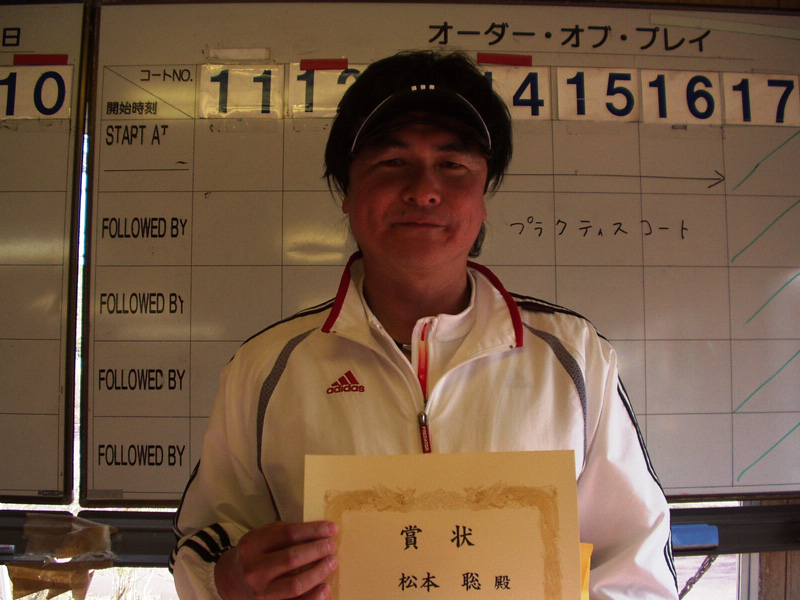 日
オーダー・オブ・プレイ
10
コートNO. 11 14 15 16 17
開始時刻
START AT
FOLLOWED BY
プラクティスコート
FOLLOWED BY
FOLLOWED BY
FOLLOWED BY
adidas
賞状
松本 聡 殿